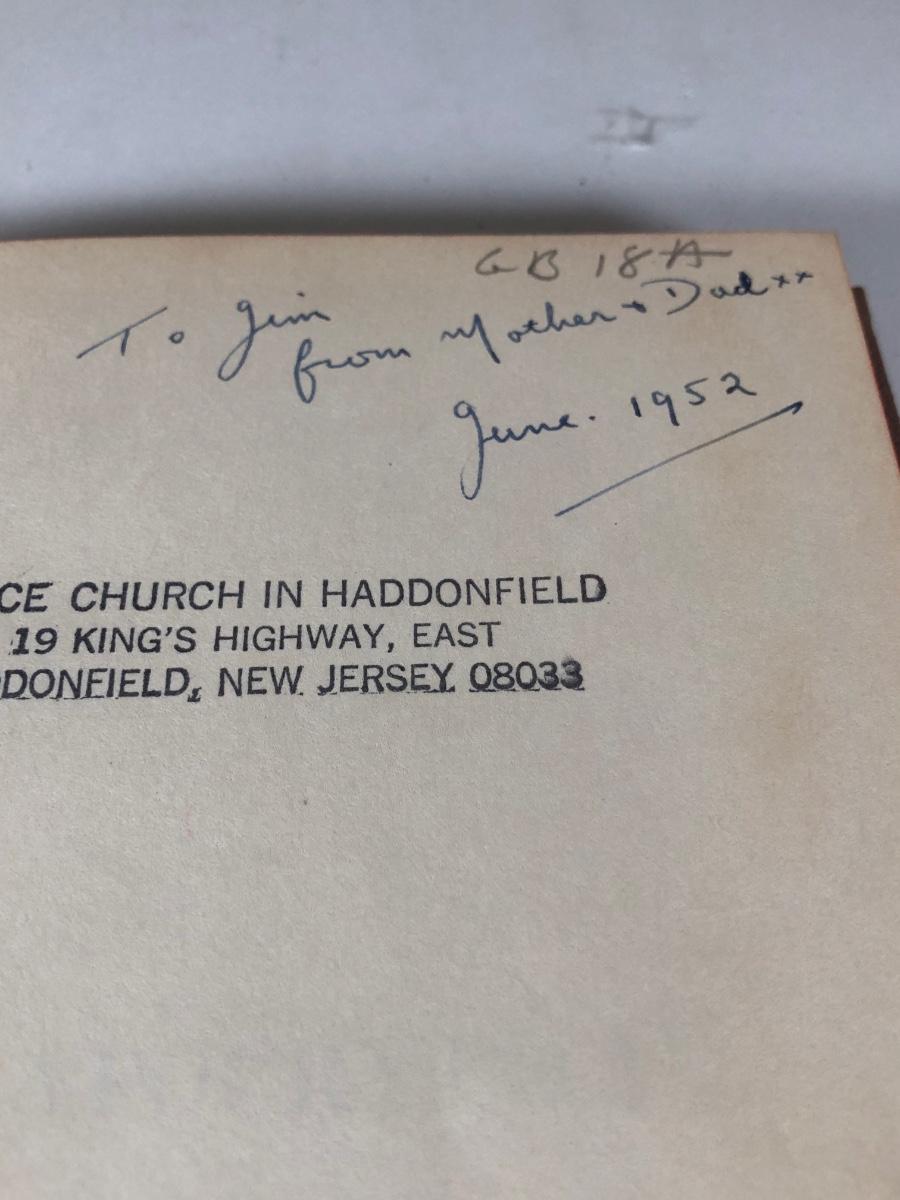 GB 18A
To Jim
from Mother + Dad xx
June. 1952
CE CHURCH IN HADDONFIELD
19 KING'S HIGHWAY, EAST
DONFIELD, NEW JERSEY 08033